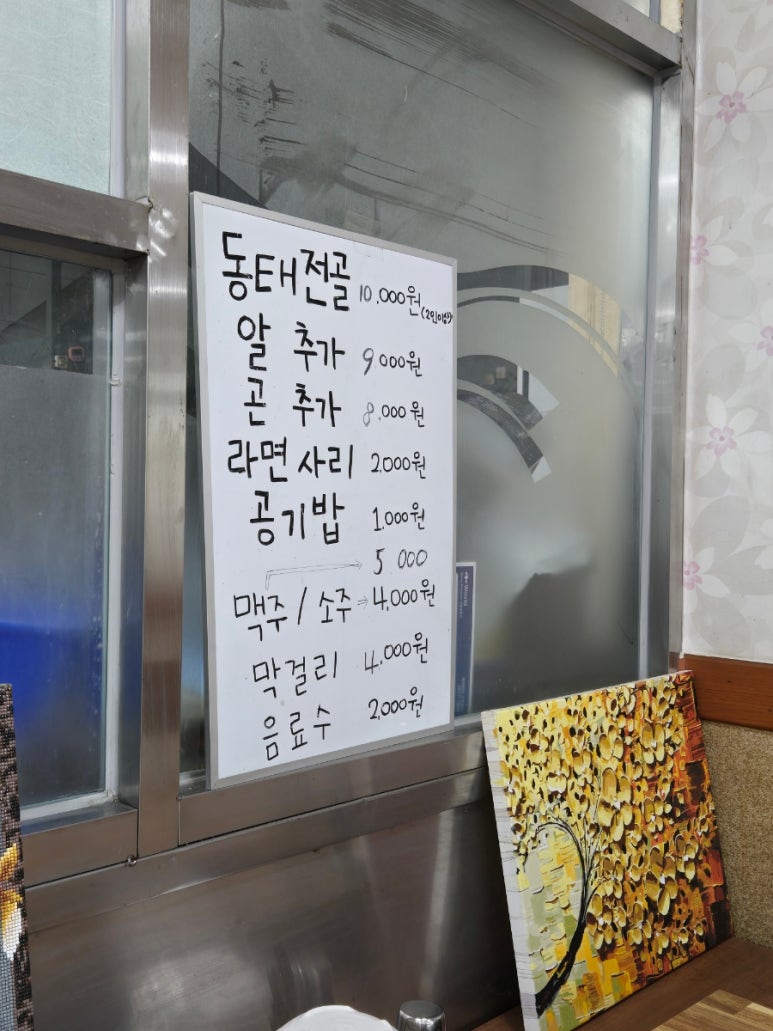 동태전골 10,000원 (2인이상)
알 추가 9000원
곤 추가 8,000원
라면사리 2,000원
공기밥 1,000원
5 000
맥주 / 소주 → 4,000원
막걸리 4,000원
음료수 2,000원